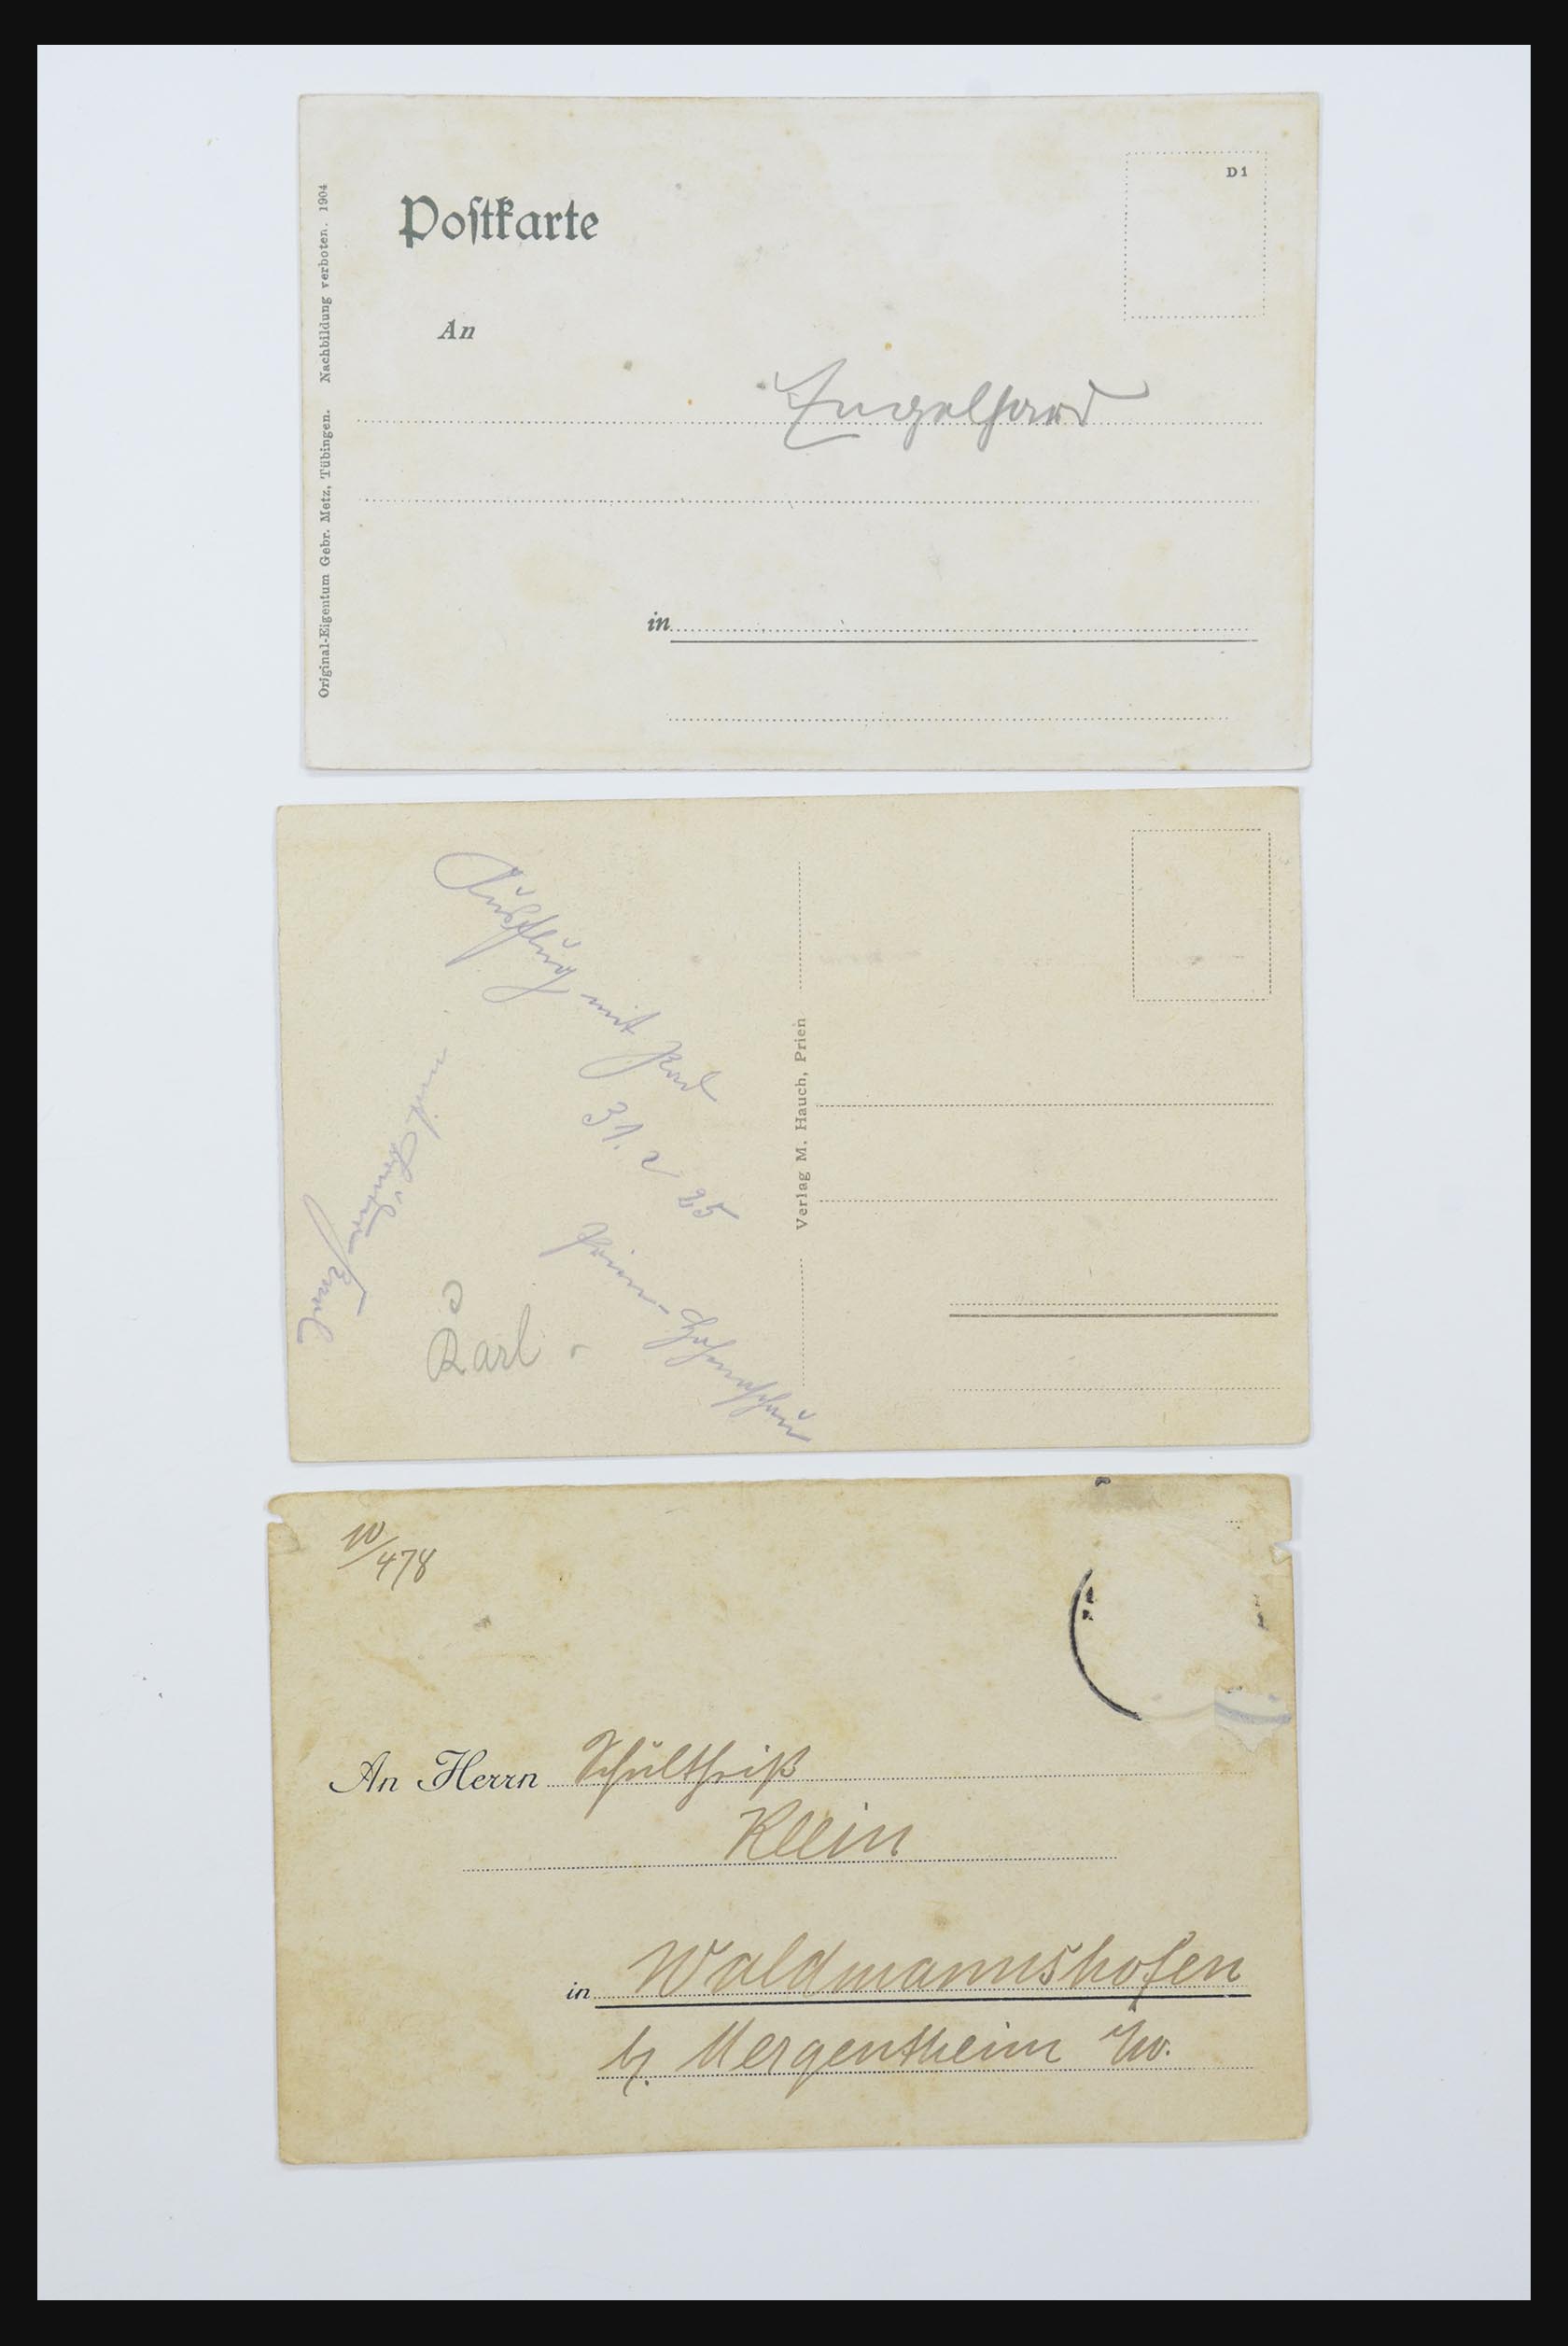 Postkarte
D1
An
Engelhard
in
Original-Eigentum Gebr. Metz, Tübingen. Nachbildung verboten. 1904
Ausflug mit Rad
31. 2 25
Prien-Hohenaschau
mit
Karl
Verlag M. Hauch, Prien
10/478
An Herrn Schultheiß
Klein
in Waldmannshofen
b/. Mergentheim i/w.